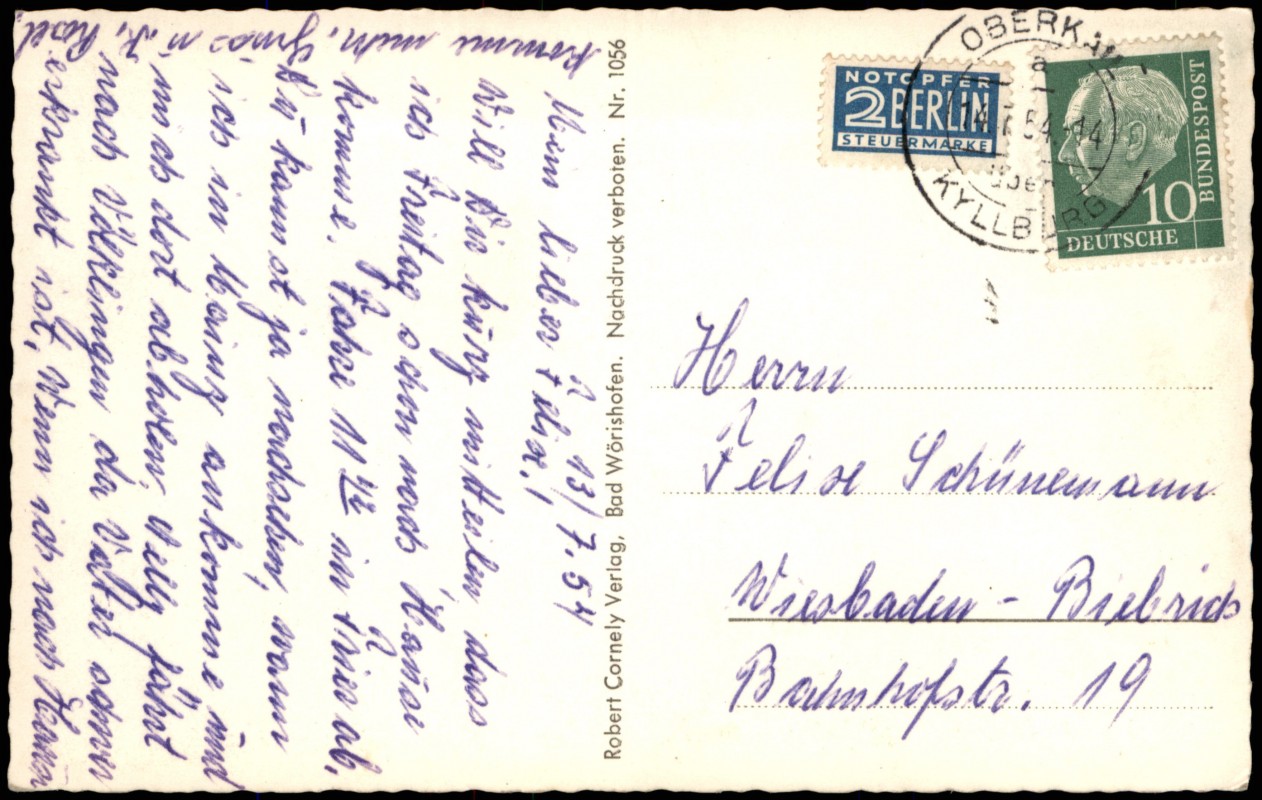 13/7.54
Mein lieber Felix!
Will Dir kurz mitteilen dass
ich Freitag schon nach Hause
komme. Fahre 11 42 in Trier ab,
Du kannst ja nachsehen, wann
ich in Mainz ankomme und
mich dort abholen, fährt
nach Völklingen da Vater schwer
erkrankt ist, wenn ich nach Hause
komme mehr, Gruss u. K. Rosel.
Robert Cornely Verlag, Bad Wörishofen. Nachdruck verboten. Nr. 1056
NOTOPFER
2 BERLIN
STEUERMARKE
über
KYLLBURG
10
DEUTSCHE
BUNDESPOST
Herrn
Felix Schünemann
Wiesbaden - Biebrich
Bahnhofstr. 19